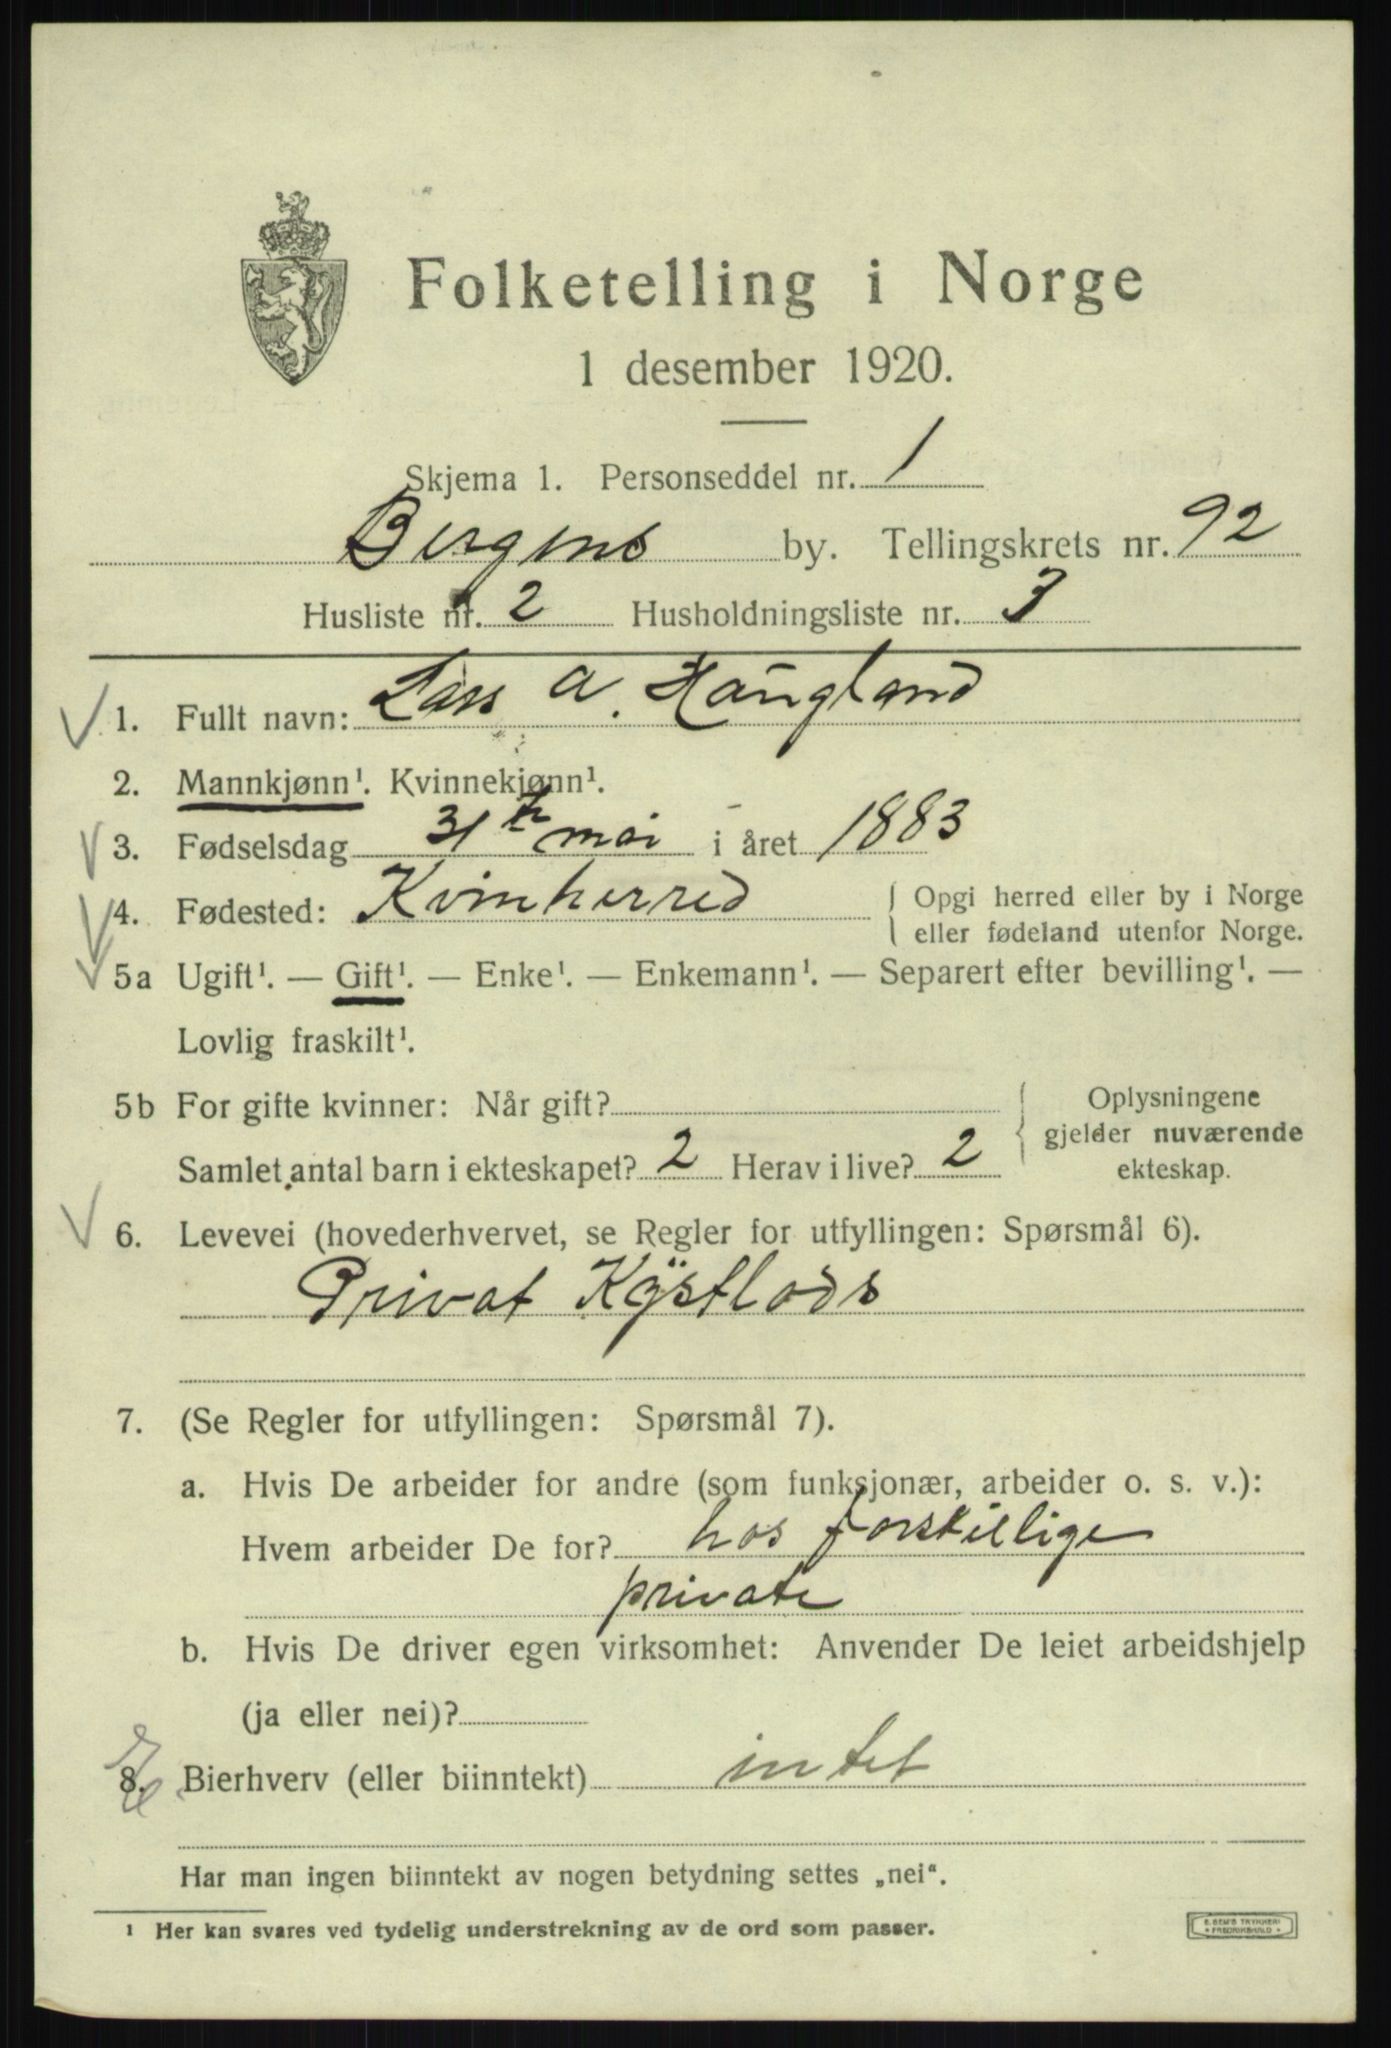 Folketelling i Norge
1 desember 1920.
Skjema 1. Personseddel nr. 1
Bergens by. Tellingskrets nr. 92
Husliste nr. 2 Husholdningsliste nr. 3
1. Fullt navn: Lars A. Haugland
2. Mannkjønn¹. Kvinnekjønn¹.
3. Fødselsdag 31te mai i året 1883
4. Fødested: Kvinherred { Opgi herred eller by i Norge
eller fødeland utenfor Norge.
5a Ugift¹. — Gift¹. — Enke¹. — Enkemann¹. — Separert efter bevilling¹. —
Lovlig fraskilt¹.
5b For gifte kvinner: Når gift? { Oplysningene
gjelder nuværende
Samlet antal barn i ekteskapet? 2 Herav i live? 2 ekteskap.
6. Levevei (hovederhvervet, se Regler for utfyllingen: Spørsmål 6).
Privat Kÿstlods
7. (Se Regler for utfyllingen: Spørsmål 7).
a. Hvis De arbeider for andre (som funksjonær, arbeider o. s. v.):
Hvem arbeider De for? hos forskillige
private
b. Hvis De driver egen virksomhet: Anvender De leiet arbeidshjelp
(ja eller nei)?
8. Bierhverv (eller biinntekt) intet
Har man ingen biinntekt av nogen betydning settes „nei“.
¹ Her kan svares ved tydelig understrekning av de ord som passer.
E. SEM'S TRYKKERI
FREDRIKSHALD